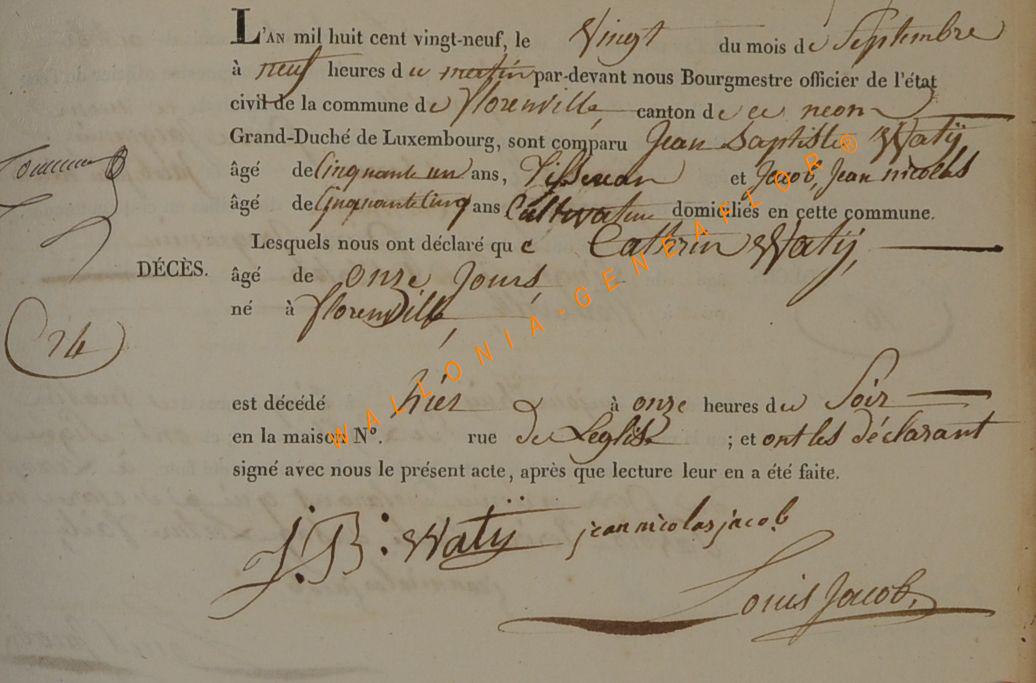 L'AN mil huit cent vingt-neuf, le Vingt du mois de Septembre
à neuf heures du matin par-devant nous Bourgmestre officier de l'état
civil de la commune de florenville, canton de ce nom
Grand-Duché de Luxembourg, sont comparu Jean Baptiste Watÿ
âgé de Cinquante un ans, Tisseran et Jacob, Jean nicolas
âgé de Cinquante Cinq ans Cultivateur domiciliés en cette commune.
Lesquels nous ont déclaré que Cathrin Watÿ,
DÉCÈS.
âgé de onze Jours
né à florenville,
24
est décédé hier à onze heures du Soir
en la maison N°. rue de Leglise ; et ont les déclarant
signé avec nous le présent acte, après que lecture leur en a été faite.
J: B: Watÿ jean nicolas jacob
Louis Jacob,
WALLONIA-GENEAFLOR®